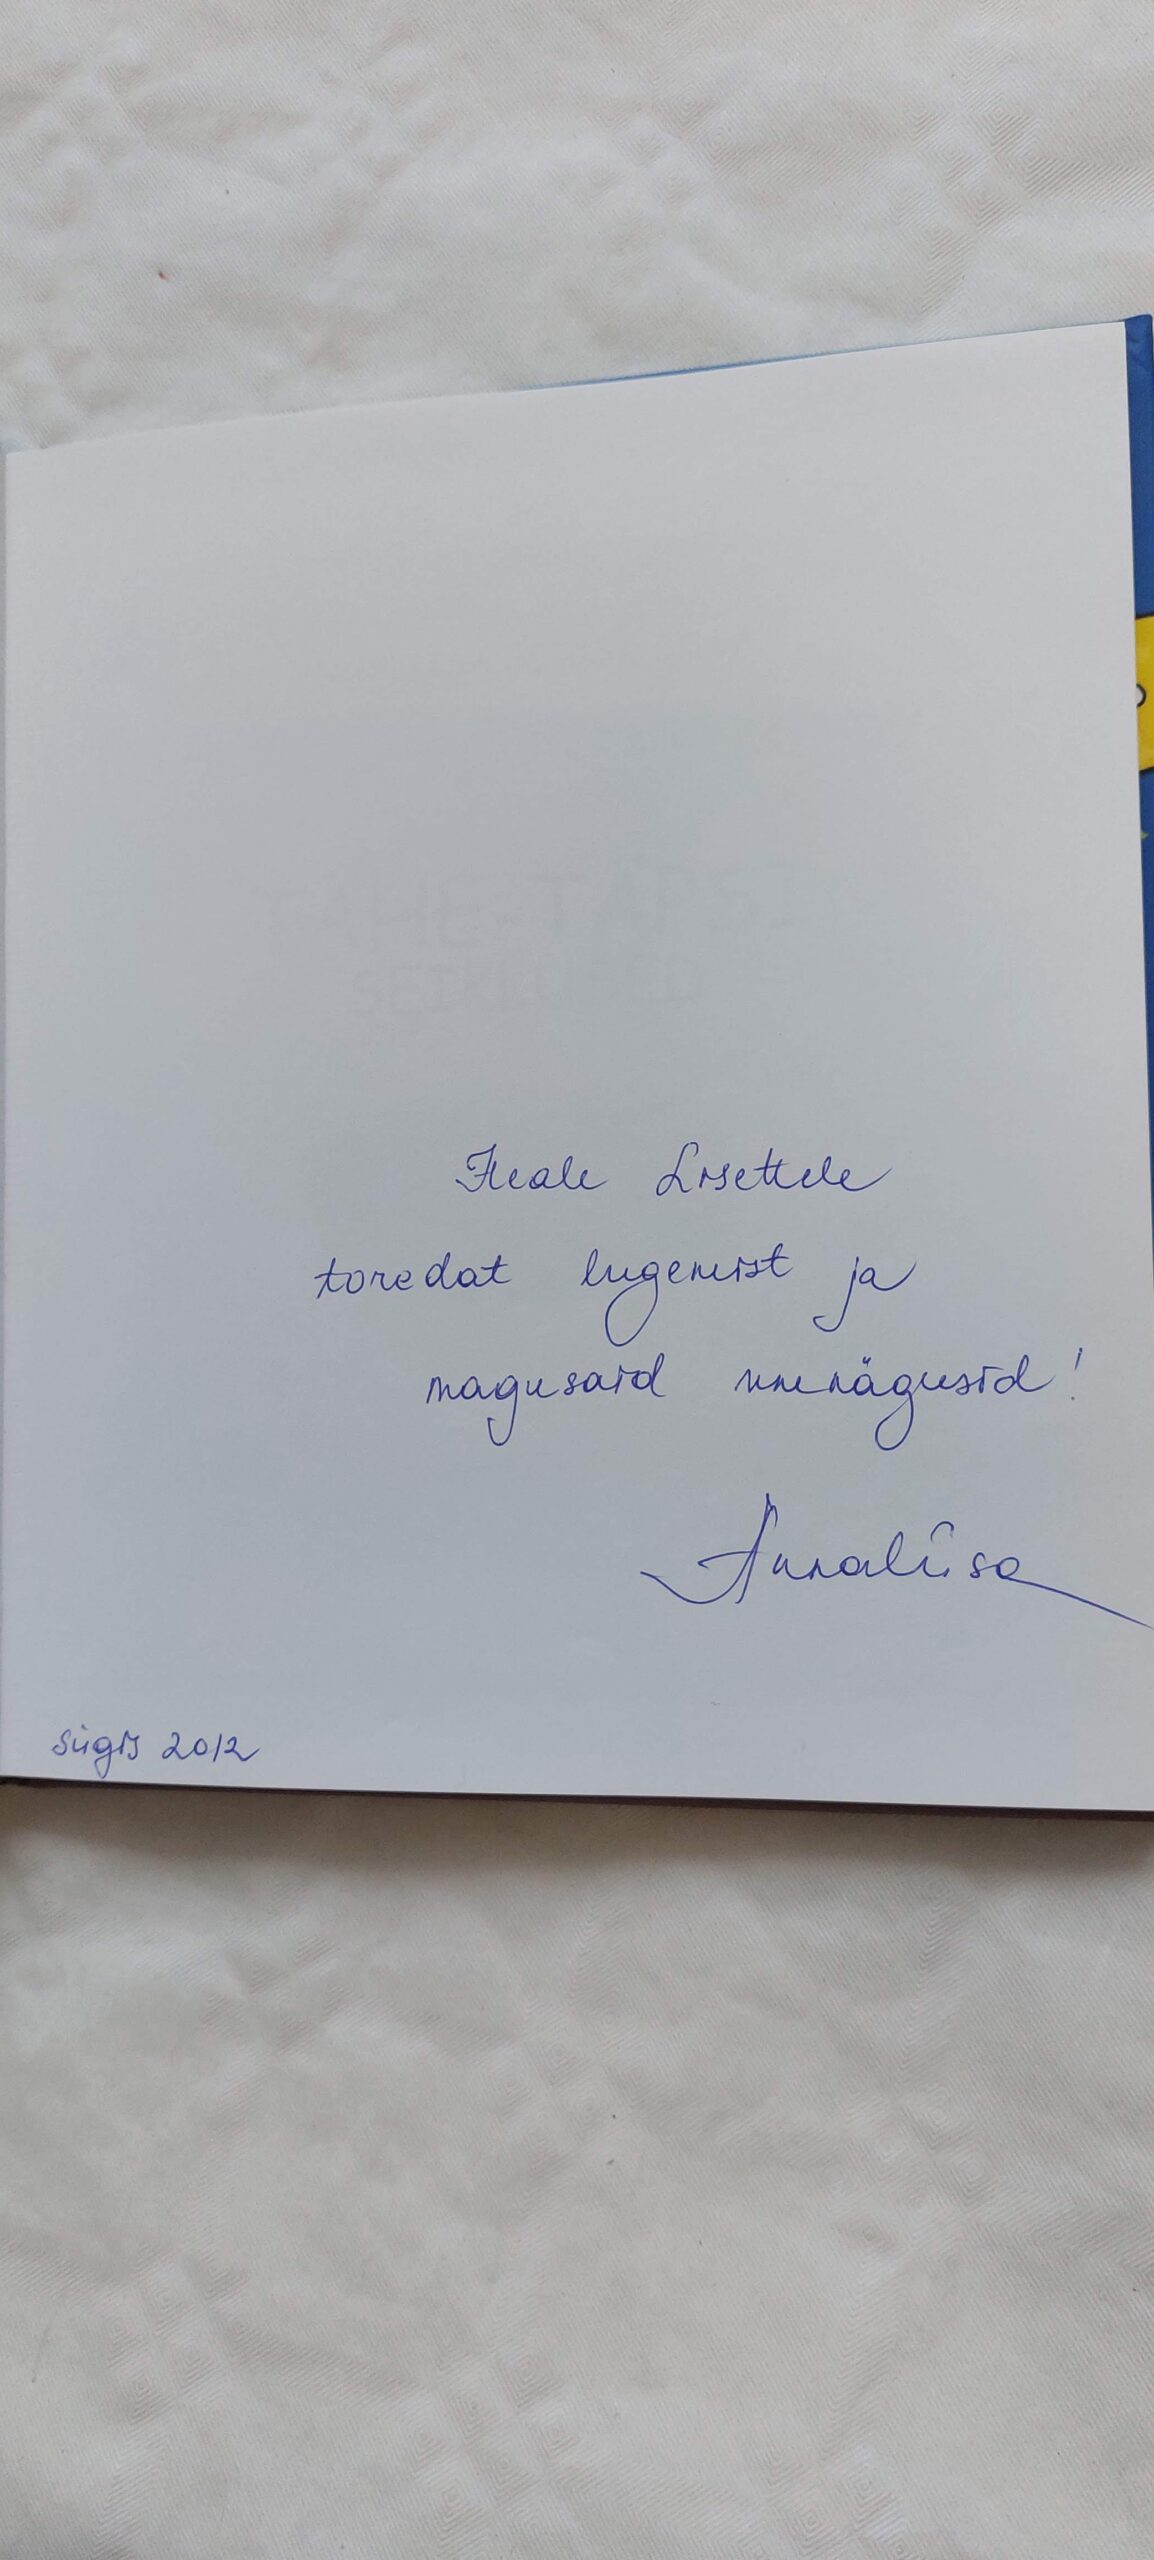 Heale Lisettele
toredat lugemist ja
magusaid unenägusid!
Annaliisa
Sügis 2012